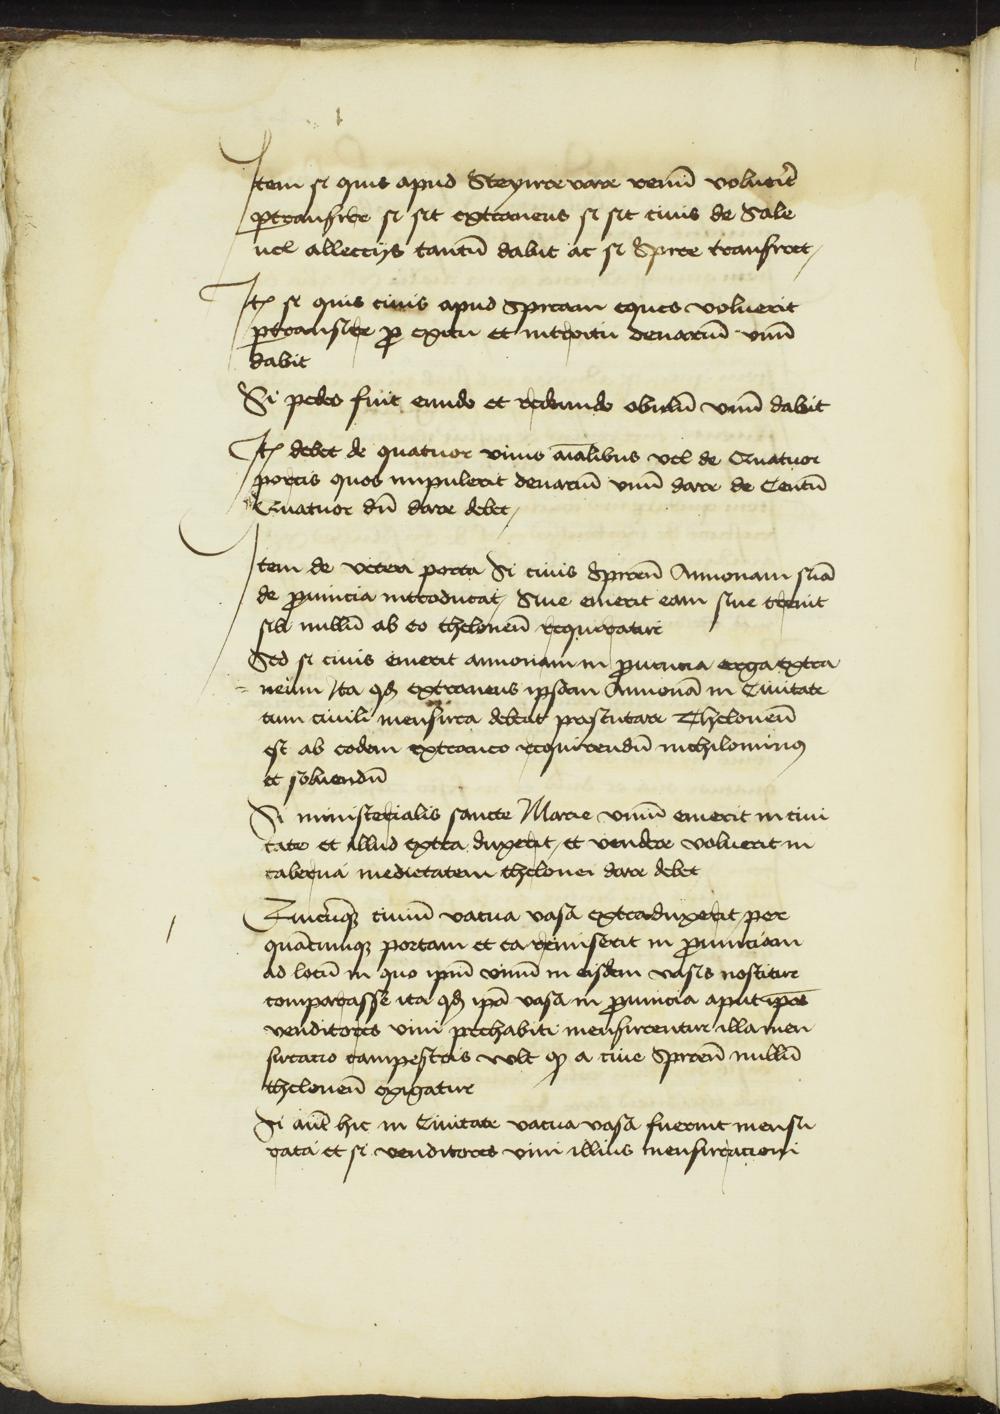 Item si quis apud Steynrevare venum volueīt
ptransire si sit extraneus si sit civis de Sale
uel alleccijs tantū dabit ac si Spire transiret
Itē si quis civis apud Spiram eques voluerit
ptransire p exitu et introitu denariū vnū
dabit
Si pedes fuit eundo et redeundo obulū vnū dabit
Itē debet de quatuor vivis aīalibus vel de Quatuor
porcis quos impulerit denariū vnū dare de Centū
Quatuor dn̄ dare debet
Item de veteri porta Si civis Spiren̄ Annonam suā
de puincia introducat, Siue emerit eam siue creuit
sibi nullū ab eo theloneū requiratur
Sed si civis emerit annonam in puincia erga extra
= neum Ita qd extraneus ipsam Annonā in Ciuitate
cum civili mensura debeat prestitare Theloneū
est ab eodem extraneo requirendū nichilominus
et soluendū
Si ministerialis sancte Marie vinū emerit in ciui
tate et illud extra duxerit, et vendere voluerit in
taberna medietatem thelonei dare debet
Quicūqz ciuiū vacua vasa extraduxerit per
quācumqz portam et ea remiserit in puinciam
ad locū in quo ipm̄ vinum in eisdem vasis noscitur
comparasse ita qd ipā vasa in puincia aput ipōs
venditores vini prehabiti mensurentur illa men
suracio campestris vult qd a ciue Spiren̄ nullū
theloneū exigatur
Si aūt hic in Ciuitate vacua vasa fuerint mensu
rata et si venditores vini illius mensuracioni